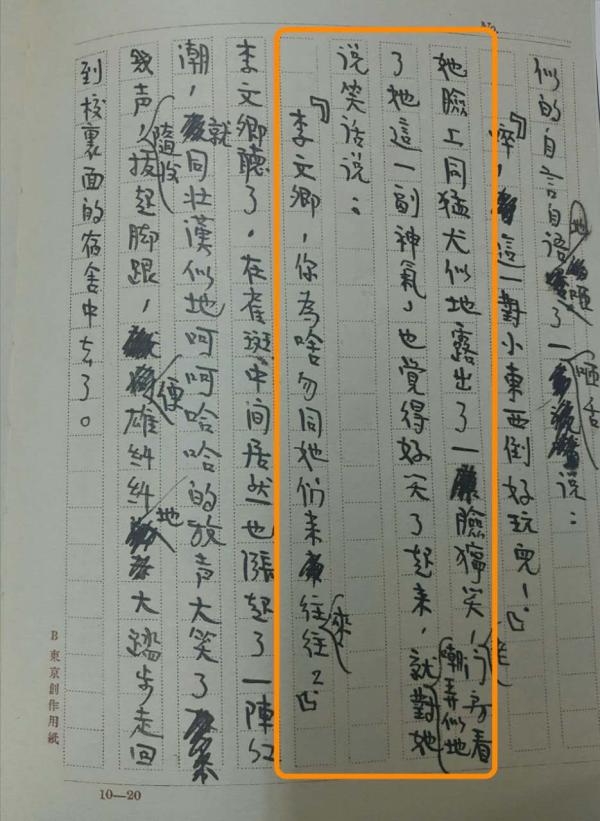 No.
似的自言自語地咂了一咂舌说：
『啐，這一對小東西倒好玩兒！』
她臉上同猛犬似地露出了一臉獰笑，门房看
了她這一副神氣，也覺得好笑了起来，就嘲弄似地對她
说笑话说：
『李文卿，你為啥勿同她们来往来往？』
李文卿聽了，在雀斑中间居然也漲起了一陣红
潮，就同壮漢似地呵呵哈哈的放声大笑了
幾声，隨後拔起脚跟，便雄糾糾地大踏步走回
到校裏面的宿舍中去了。
B 東京創作用紙
10—20